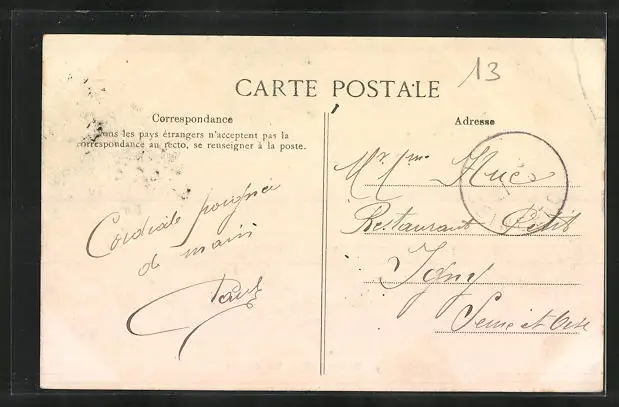 13
CARTE POSTALE
Correspondance
Tous les pays étrangers n'acceptent pas la
correspondance au recto, se renseigner à la poste.
Cordiale poignée
de main
Paul
Adresse
Mr Mme
Restaurant Petit
Igny
Seine et Oise